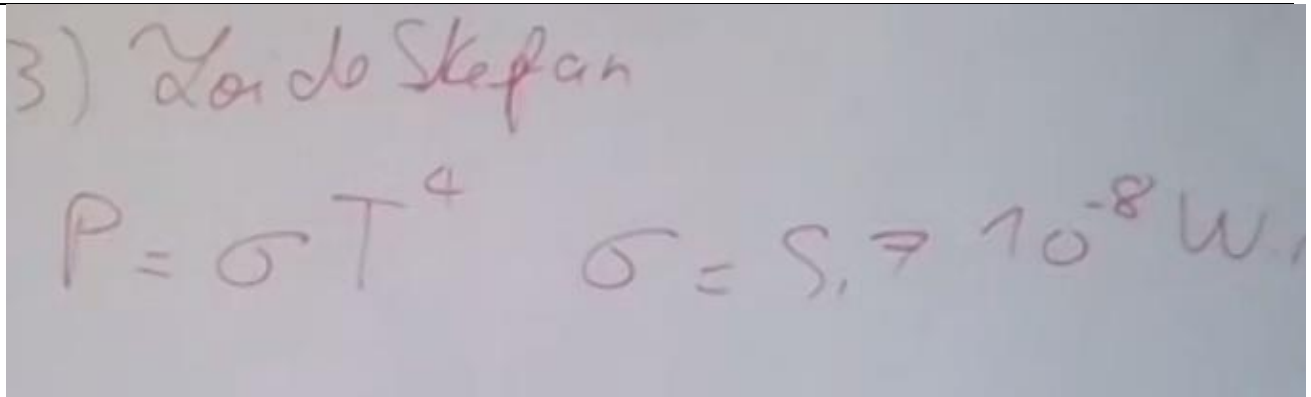 3) Loi de Stefan
P = σ T⁴ σ = 5,7 10⁻⁸ W.